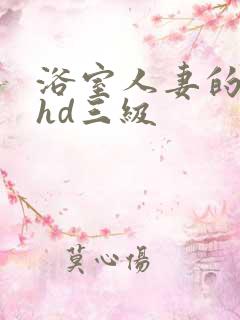 浴室人妻的
hd三級
莫心傷